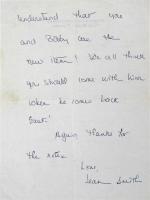 understand that you
and Bobby are the
new item! We all think
you should come with him
when he comes back
East!
Again thanks for
the notes
Love
Jean Smith